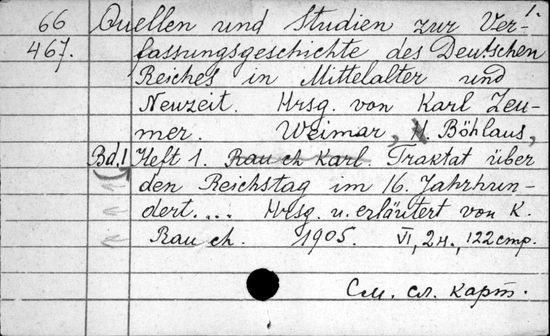 66 Quellen und Studien zur Ver-
467. fassungsgeschichte des Deutschen
Reiches in Mittelalter und
Neuzeit. Hrsg. von Karl Zeu-
mer. Weimar, H. Böhlaus,
Bd. 1, Heft 1. Rauch Karl. Traktat über
den Reichstag im 16. Jahrhun-
dert.... Hrsg. u. erläutert von K.
Rauch. 1905. VI, 2н., 122 стр.
См. сл. карт.